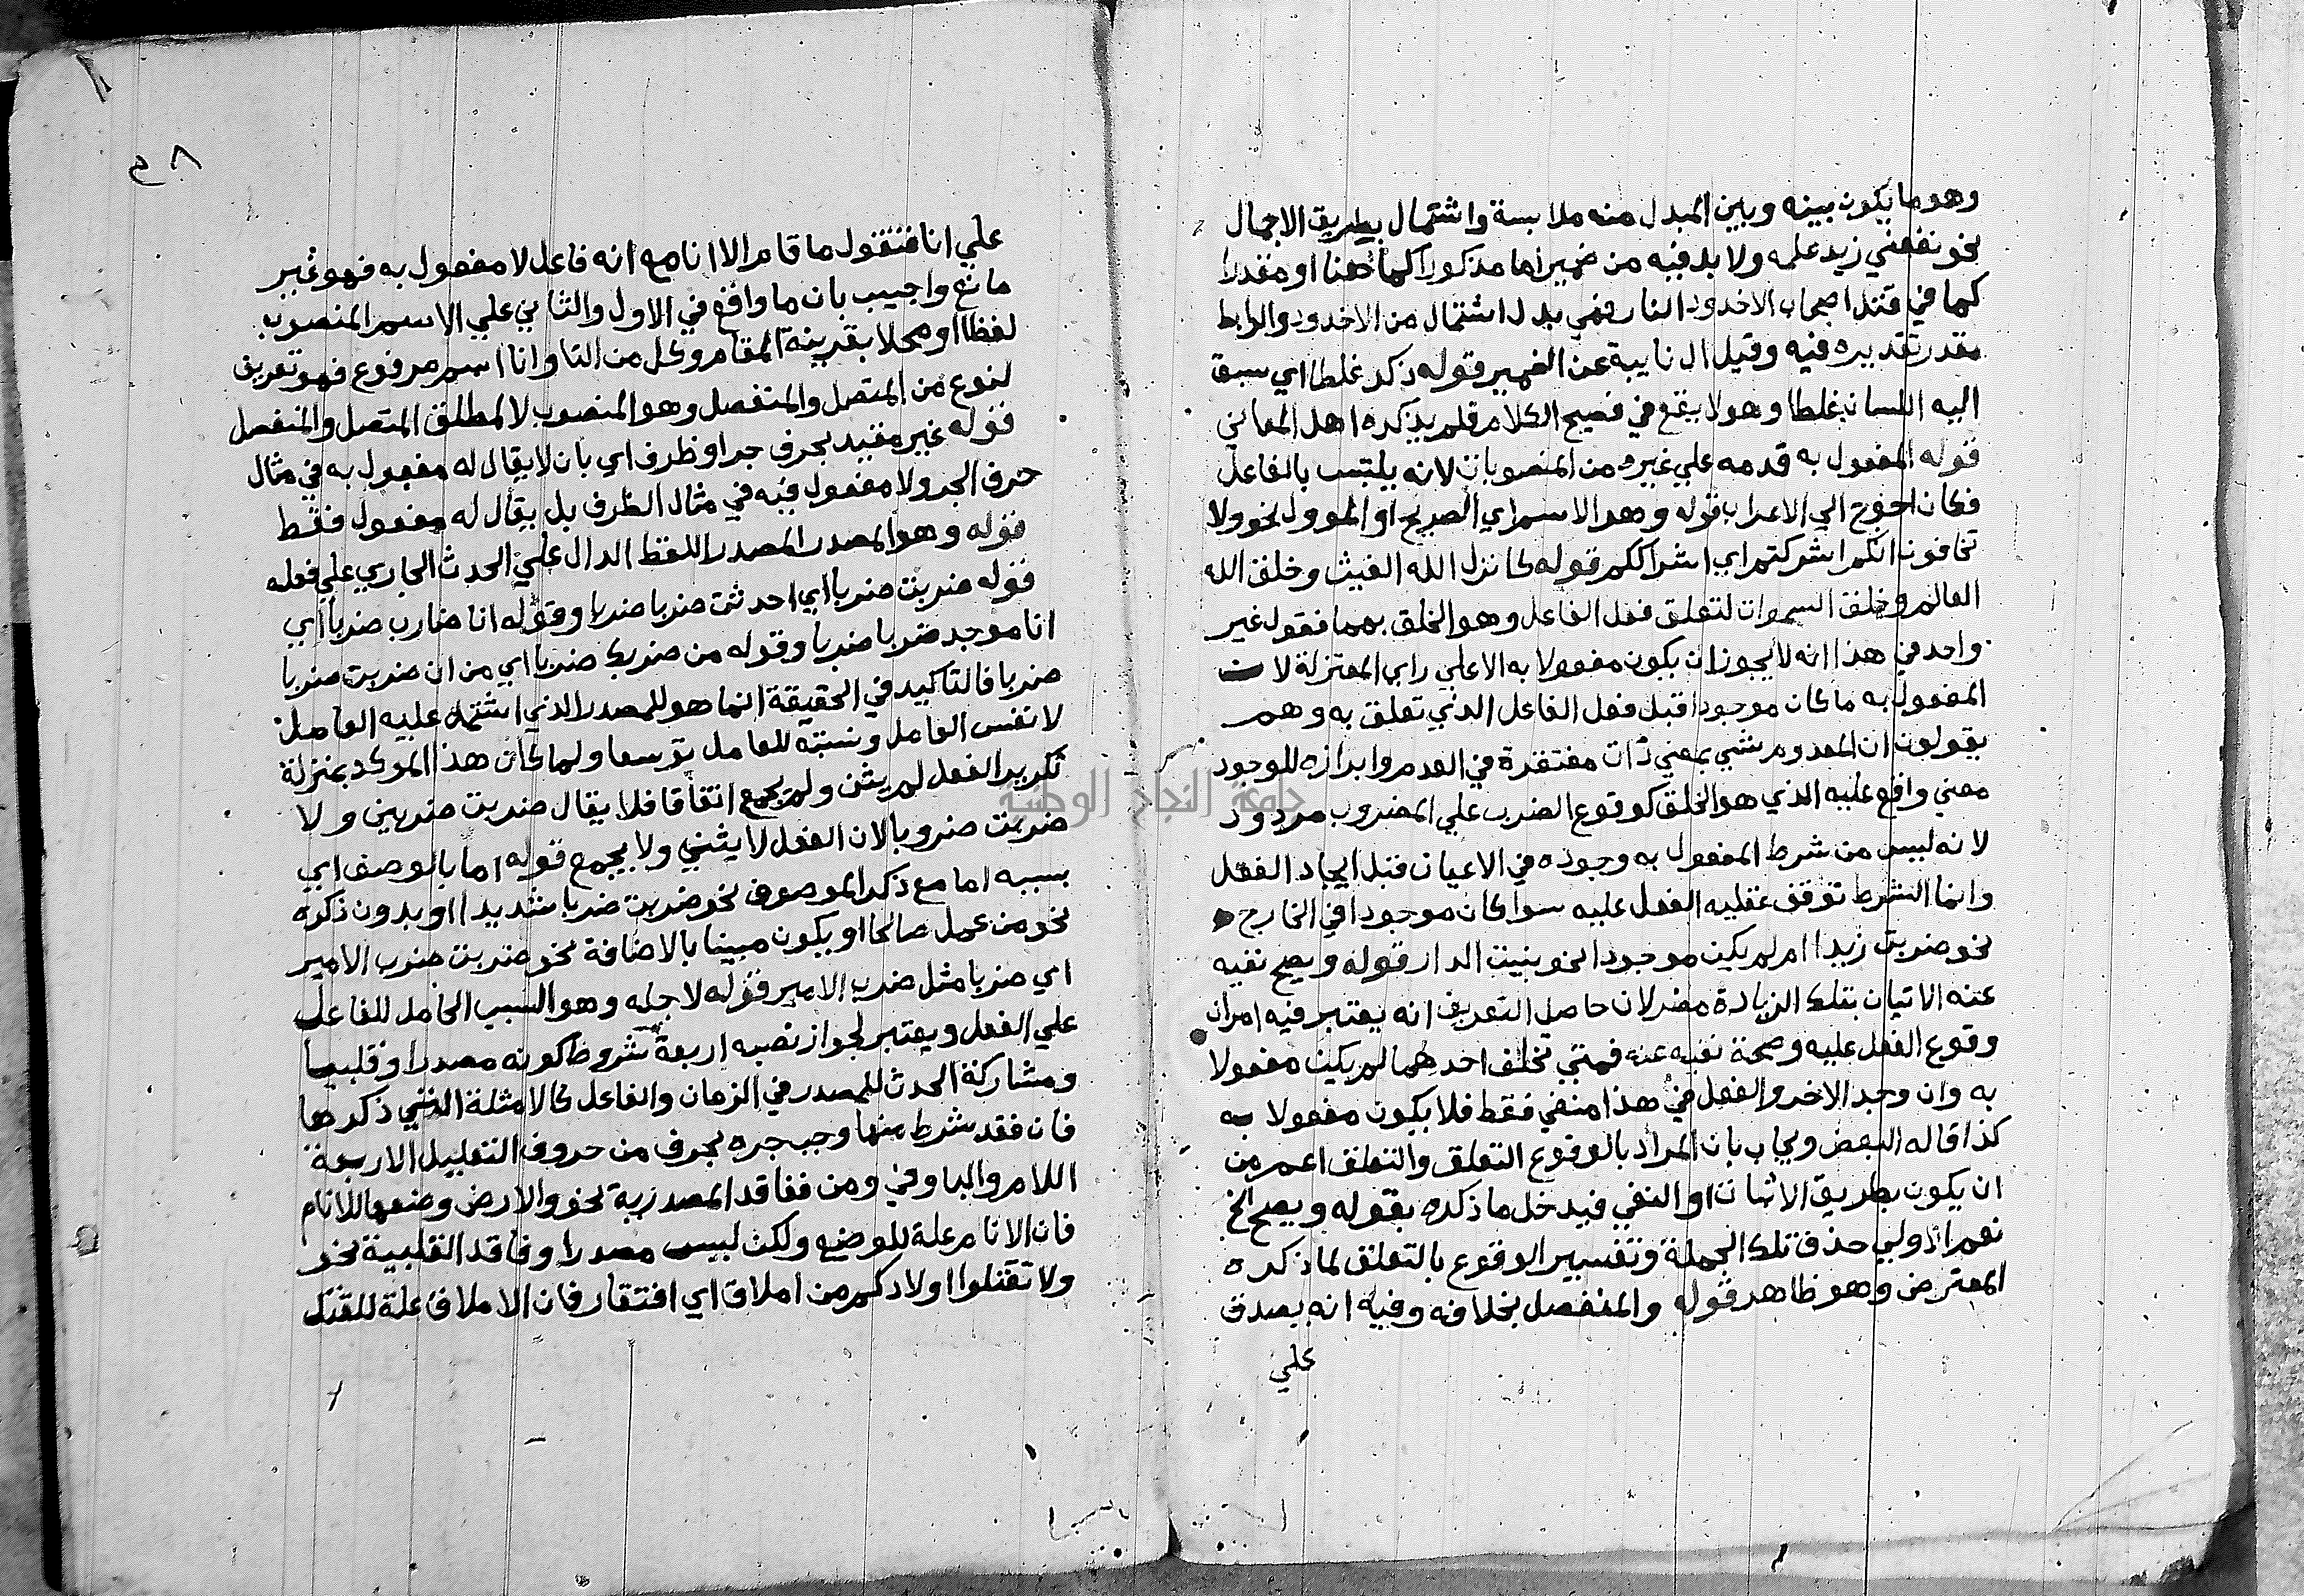 وهو ما يكون بينه وبين المبدل منه ملابسة واشتمال بطريق الاجمال
نحو نفعني زيد علمه ولا بد فيه من ضمير اما مذكورا كما هنا او مقدرا
كما في قتل اصحاب الاخدود النار فهي بدل اشتمال من الاخدود والرابط
مقدر تقديره فيه وقيل ال نايبة عن الضمير قوله ذكر غلطا اي سبق
اليه اللسان غلطا وهو لا يقع في فصيح الكلام فلم يذكره اهل المعاني
قوله المفعول به قدمه علي غيره من المنصوبات لانه يلتبس بالفاعل
فكان احوج الي الاعراب قوله وهو الاسم اي الصريح او الموول نحو ولا
تخافون انكم اشركتم اي اشراككم قوله كانزل الله الغيث وخلق الله
العالم وخلق السموات لتعلق فعل الفاعل وهو الخلق بهما فقول غير
واحد في هذا انه لا يجوز ان يكون مفعولا به الا علي راي المعتزلة لان
المفعول به ما كان موجودا قبل فعل الفاعل الذي تعلق به وهم
يقولون ان المعدوم شي بمعني ذات مفتقرة في العدم وابرازه للوجود
معني واقع عليه الذي هو الخلق كوقوع الضرب علي المضروب مردود
لانه ليس من شرط المفعول به وجوده في الاعيان قبل ايجاد الفعل
وانما الشرط توقف عقلية الفعل عليه سوا كان موجودا في الخارج
نحو ضربت زيدا ام لم يكن موجودا نحو بنيت الدار قوله ويصح نفيه
عنه الاتيان بتلك الزيادة مضر لان حاصل التعريف انه يعتبر فيه امران
وقوع الفعل عليه وصحة نفيه عنه فمتي تخلف احدهما لم يكن مفعولا
به وان وجد الاخر والفعل في هذا منفي فقط فلا يكون مفعولا به
كذا قاله البعض ويجاب بان المراد بالوقوع التعلق والتعلق اعم من
ان يكون بطريق الاثبات او النفي فيدخل ما ذكره بقوله ويصح الخ
نعم الاولي حذف تلك الجملة وتفسير الوقوع بالتعلق لما ذكره
المعترض وهو ظاهر قوله والمنفصل بخلافه وفيه انه يصدق
علي
٨ ح
علي انا فنقول ما قام الا انا مع انه فاعل لا مفعول به فهو غير
مانع واجيب بان ما واقع في الاول والثاني علي الاسم المنصوب
لفظا او محلا بقرينة المقام وكل من التا وانا اسم مرفوع فهو تعريف
لنوع من المتصل والمنفصل وهو المنصوب لا لمطلق المتصل والمنفصل
قوله غير مقيد بحرف جر او ظرف اي بان لا يقال له مفعول به في مثال
حرف الجر ولا مفعول فيه في مثال الظرف بل يقال له مفعول فقط
قوله وهو المصدر المصدر اللفظ الدال علي الحدث الجاري علي فعله
قوله ضربت ضربا اي احدثت ضربا ضربا وقوله انا ضارب ضربا اي
انا موجد ضربا ضربا وقوله من ضربك ضربا اي من ان ضربت ضربا
ضربا فالتاكيد في الحقيقة انما هو للمصدر الذي اشتمل عليه العامل
لا نفس العامل ونسبته للعامل توسعا ولما كان هذا الموكد بمنزلة
تكرير الفعل لم يثن ولم يجمع اتفاقا فلا يقال ضربت ضربين ولا
ضربت ضروبا لان الفعل لا يثني ولا يجمع قوله اما بالوصف اي
بسببه اما مع ذكر الموصوف نحو ضربت ضربا شديدا او بدون ذكره
نحو من عمل صالحا او يكون مبينا بالاضافة نحو ضربت ضرب الامير
اي ضربا مثل ضرب الامير قوله لاجله وهو السبب الحامل للفاعل
علي الفعل ويعتبر لجواز نصبه اربعة شروط كونه مصدرا وقلبيا
ومشاركة الحدث للمصدر في الزمان والفاعل كالامثلة التي ذكرها
فان فقد شرط منها وجب جره بحرف من حروف التعليل الاربعة
اللام والبا وفي ومن ففاقد المصدرية نحو والارض وضعها للانام
فان الانام علة للوضع ولكن ليس مصدرا وفاقد القلبية نحو
ولا تقتلوا اولادكم من املاق اي افتقار فان الاملاق علة للقتل
جامعة النجاح الوطنية